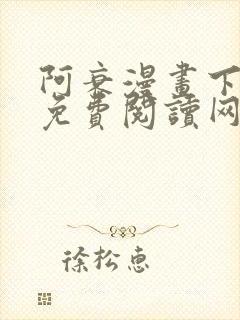 阿衰漫畫下
免費閱讀网
徐松惠